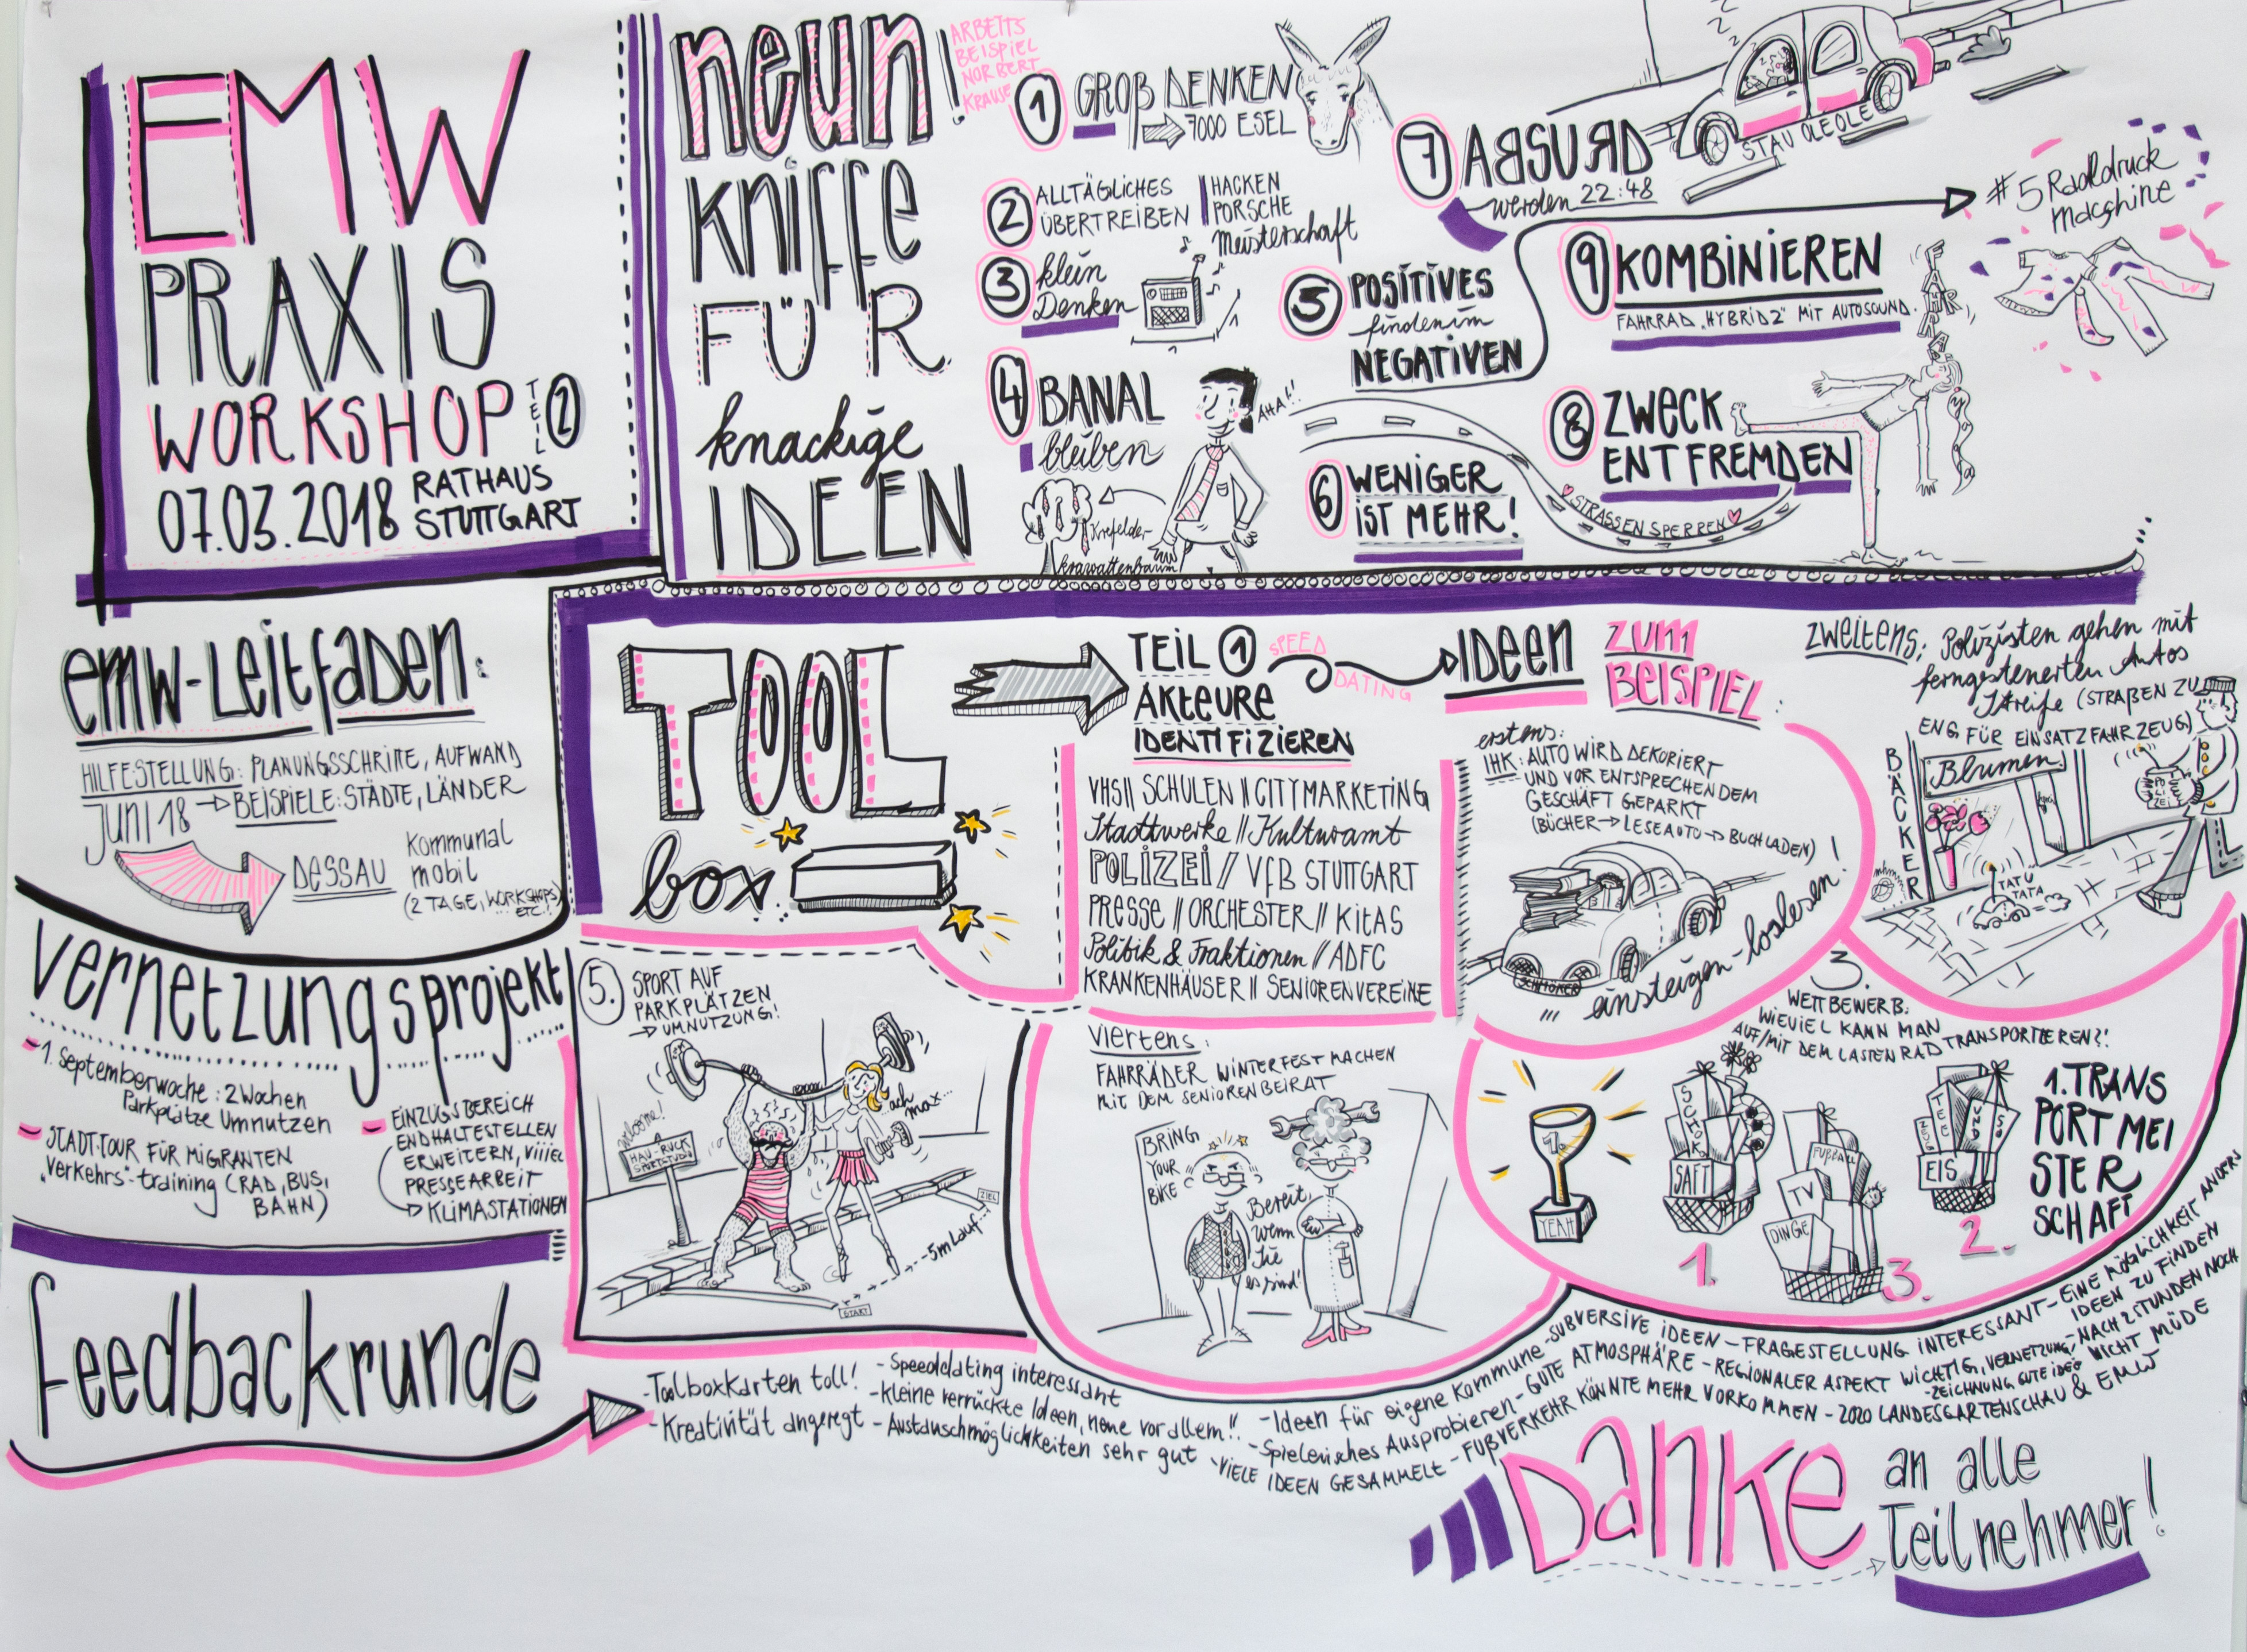 EMW
PRAXIS
WORKSHOP
TEIL 2
07.03.2018
RATHAUS
STUTTGART
neun!
KNIFFE
FÜR
knackige
IDEEN
ARBEITS
BEISPIEL
NORBERT
KRAUSE
1 GROß DENKEN
7000 ESEL
2 ALLTÄGLICHES
ÜBERTREIBEN
HACKEN
PORSCHE
Meisterschaft
3 klein
Denken
4 BANAL
bleiben
AHA!!
Krefelder-
krawattenbaum
5 POSITIVES
finden im
NEGATIVEN
#5 Raddruck
6 WENIGER
IST MEHR!
STRASSEN SPERREN
7 ABSURD
werden 22:48
STAU
8 ZWECK
ENTFREMDEN
9 KOMBINIEREN
FAHRRAD „HYBRID2" MIT AUTOSOUND.
emw-Leitfaden:
HILFESTELLUNG: PLANUNGSSCHRITTE, AUFWAND
JUNI 18 → BEISPIELE: STÄDTE, LÄNDER
DESSAU
Kommunal
mobil
(2 TAGE, WORKSHOPS
ETC.!
Vernetzungsprojekt
-1. Septemberwoche: 2 Wochen
Parkplätze Umnutzen
- STADT-TOUR FÜR MIGRANTEN
„Verkehrs"-training (RAD, BUS,
BAHN)
- EINZUGSBEREICH
ENDHALTESTELLEN
ERWEITERN, ViiiEL
PRESSEARBEIT
KLIMASTATIONEN
TOOL
box
TEIL 1
AKTEURE
IDENTIFIZIEREN
SPEED
DATING
IDEEN
ZUM
BEISPIEL:
VHS// SCHULEN // CITYMARKETING
Stadtwerke // Kulturamt
POLIZEI / VfB STUTTGART
PRESSE // ORCHESTER // KITAS
Politik & Fraktionen // ADFC
KRANKENHÄUSER // SENIORENVEREINE
erstens:
IHK: AUTO WIRD DEKORIERT
UND VOR ENTSPRECHENDEM
GESCHÄFT GEPARKT
(BÜCHER → LESEAUTO → BUCHLADEN)!
SCHMÖKER
einsteigen-loslesen!
ZWEITENS: Polizisten gehen mit
ferngesteuerten Autos
Streife (STRAßEN ZU
ENG FÜR EINSATZFAHRZEUG)
BÄCKER
Blumen
POLIZEI
TATÜ
TATA
3.
WETTBEWERB:
WIEVIEL KANN MAN
AUF/MIT DEM LASTENRAD TRANSPORTIEREN?!
1
YEAH
SCHOK
SAFT
1.
FUßBALL
TV
DINGE
3.
TEE
UND
EIS
2.
1. TRANS
PORT MEI
STER
SCHAFT
VIERTENS:
FAHRRÄDER WINTERFEST MACHEN
MIT DEM SENIORENBEIRAT
BRING
YOUR
BIKE
Bereit,
wenn
Sie
es sind!
5. SPORT AUF
PARKPLÄTZEN
→ UMNUTZUNG!
HAU-RUCK
SPORTSTUDIO
ach
max...
ZIEL
5m Lauf
START
Feedbackrunde
-Toolboxkarten toll!
-Kreativität angeregt
-Speeddating interessant
-kleine verrückte Ideen, neue vor allem!!
-Austauschmöglichkeiten sehr gut
-Ideen für eigene Kommune -SUBVERSIVE IDEEN - FRAGESTELLUNG INTERESSANT- EINE MÖGLICHKEIT ANDERS
IDEEN ZU FINDEN
-Spielerisches Ausprobieren - GUTE ATMOSPHÄRE - REGIONALER ASPEKT WICHTIG, VERNETZUNG, -NACH 2 STUNDEN NOCH
NICHT MÜDE
-ZEICHNUNG GUTE IDEE
-VIELE IDEEN GESAMMELT - FUßVERKEHR KÖNNTE MEHR VORKOMMEN - 2020 LANDESGARTENSCHAU & EMW
Danke
an alle
Teilnehmer!